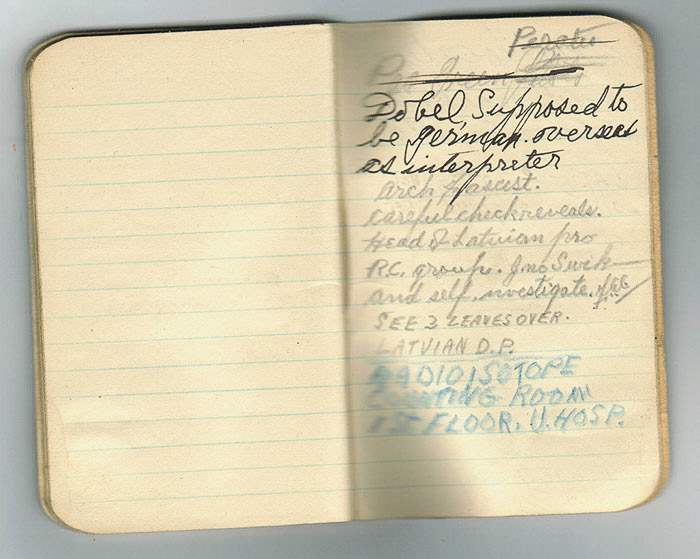 Dobel Supposed to
be german. overseas
as interpreter
arch fascist.
careful check reveals.
Head of Latvian pro
R.C. groups. Jno Swik
and self investigate.
SEE 3 LEAVES OVER.
LATVIAN D.P.
RADIOISOTOPE
COUNTING ROOM
1ST FLOOR. U. HOSP.